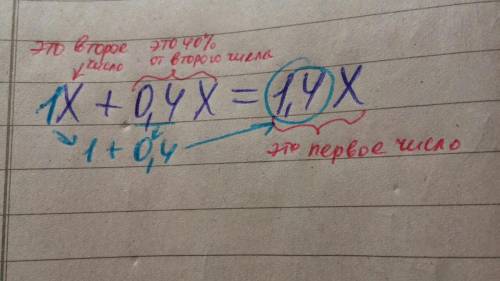 это второе число
это 40%
от второго числа
1X + 0,4X = 1,4X
1 + 0,4
это первое число